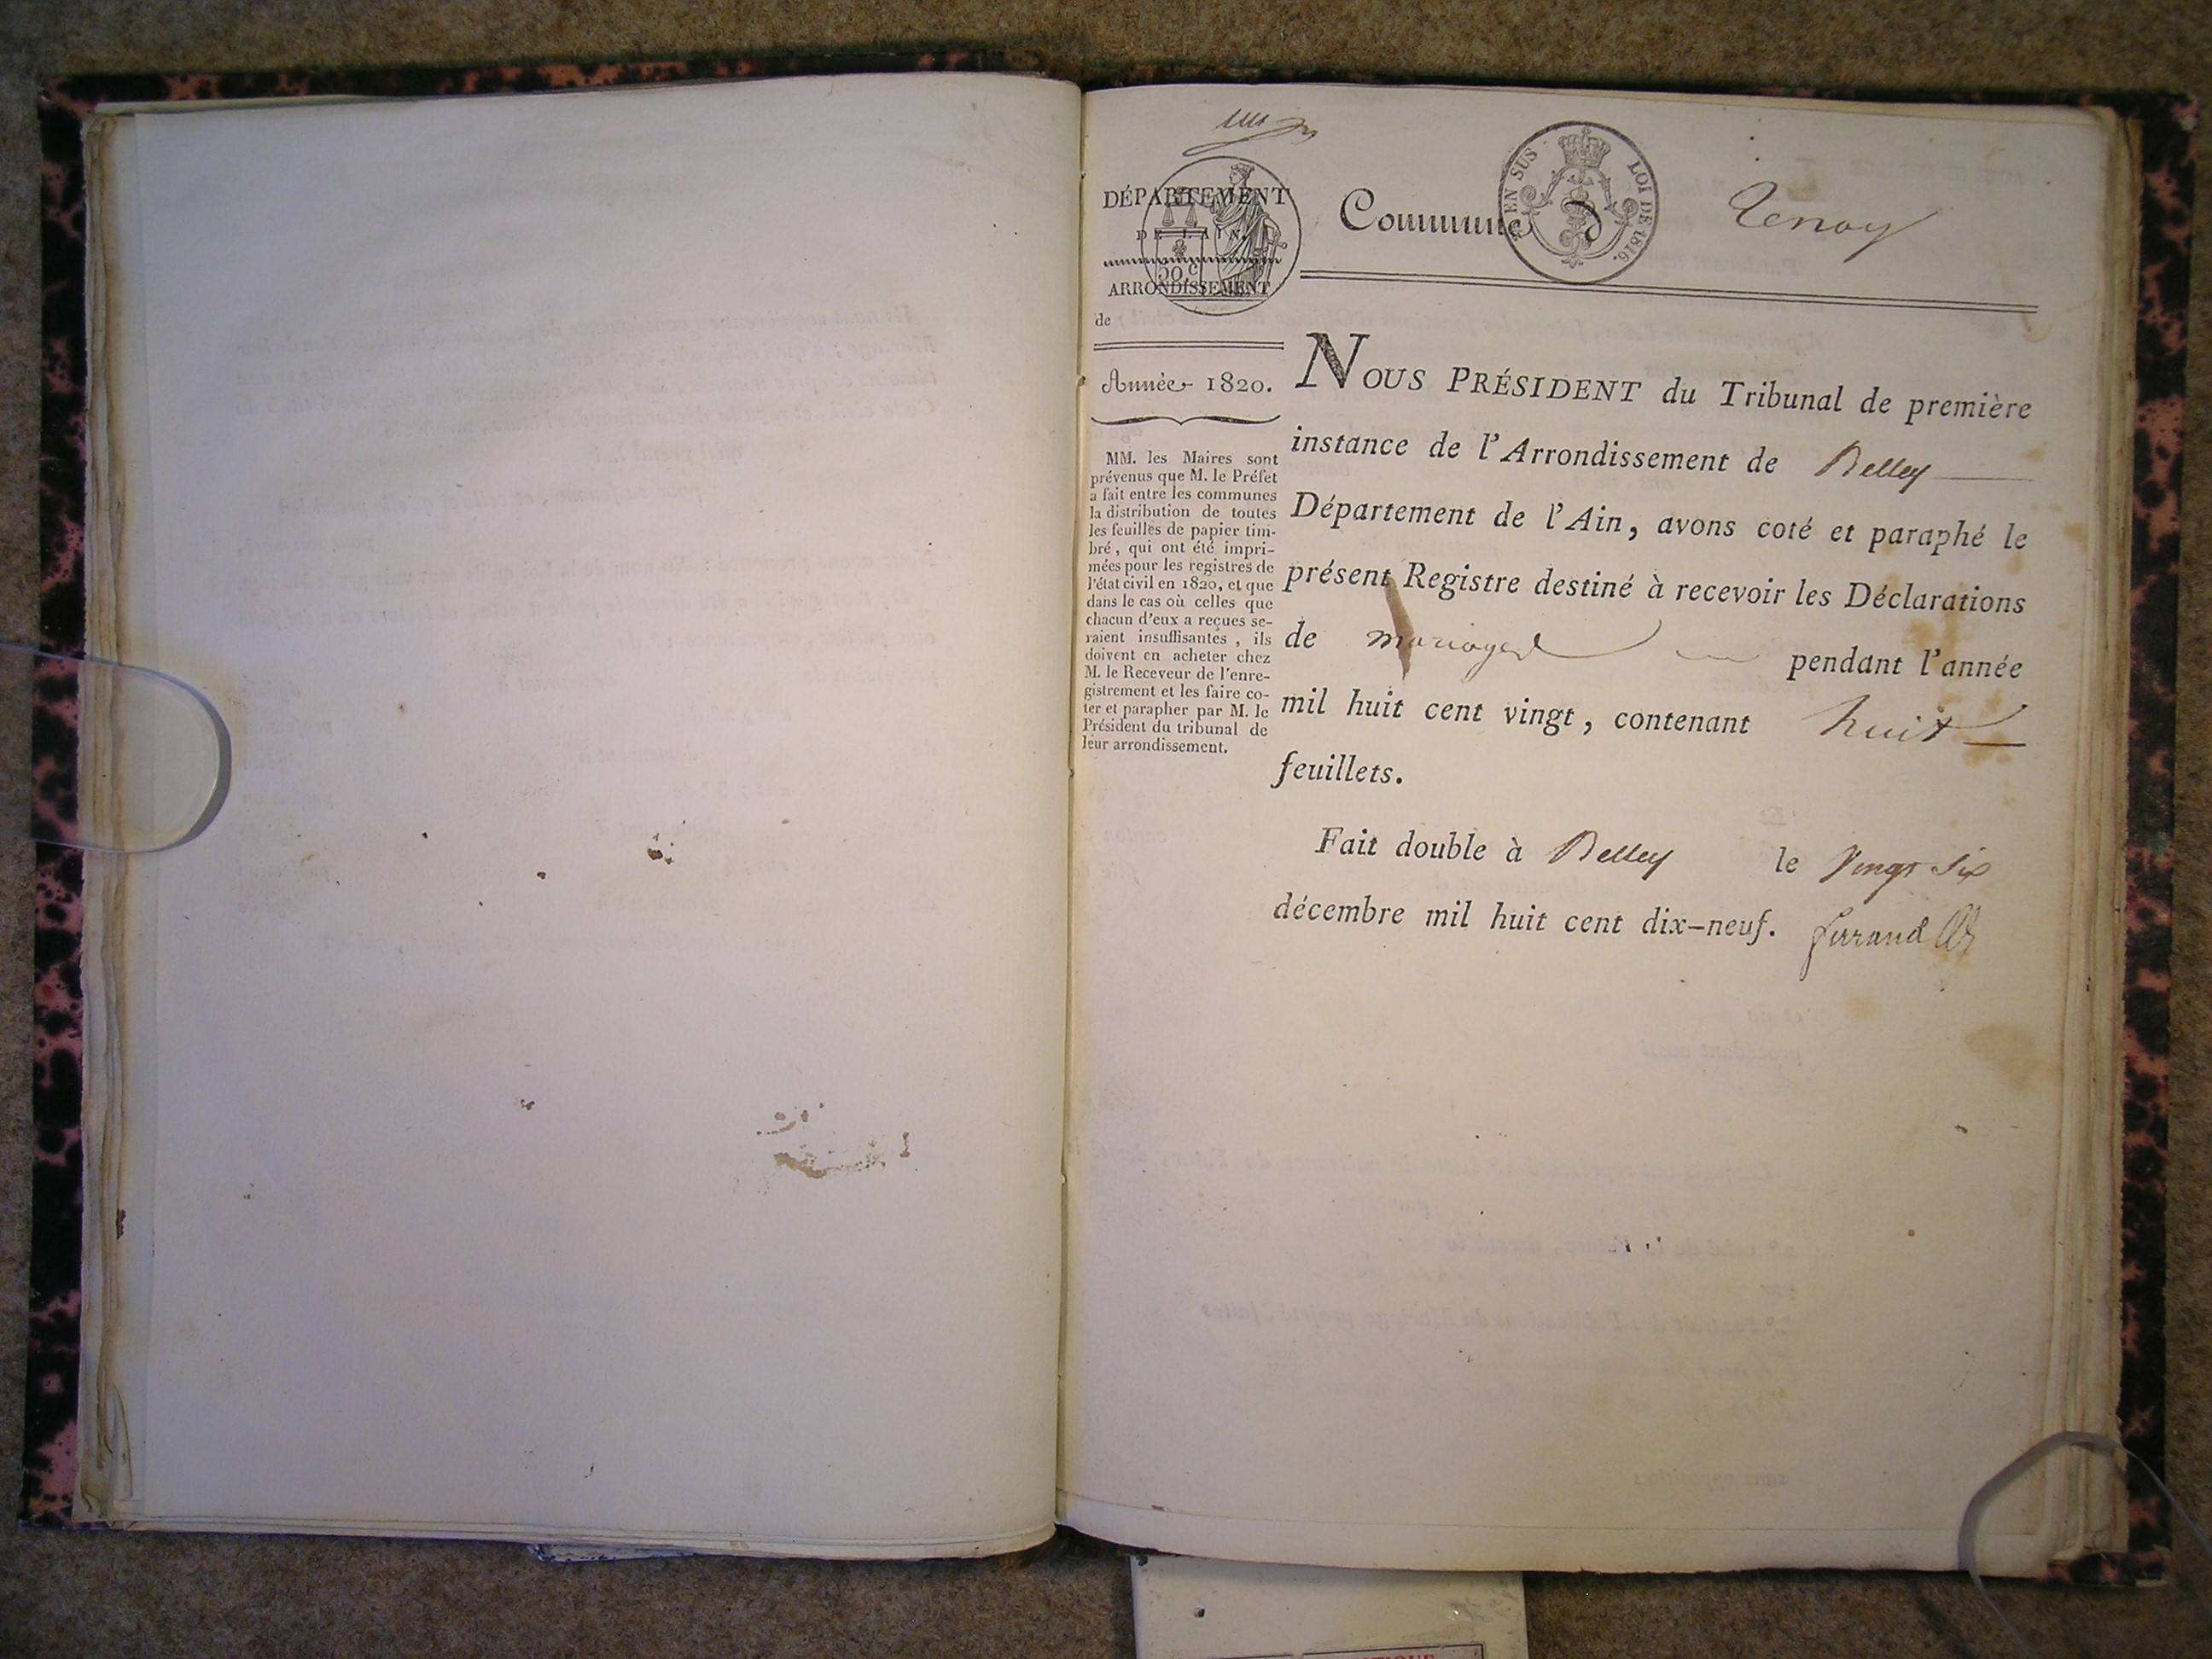 DÉPARTEMENT
DE L'AIN.
20 c
ARRONDISSEMENT
de
Commune D Tenay
EN SUS LOI DE 1816.
Année 1820.
MM. les Maires sont
prévenus que M. le Préfet
a fait entre les communes
la distribution de toutes
les feuilles de papier tim-
bré, qui ont été impri-
mées pour les registres de
l'état civil en 1820, et que
dans le cas où celles que
chacun d'eux a reçues se-
raient insuffisantes, ils
doivent en acheter chez
M. le Receveur de l'enre-
gistrement et les faire co-
ter et parapher par M. le
Président du tribunal de
leur arrondissement.
NOUS PRÉSIDENT du Tribunal de première
instance de l'Arrondissement de Belley
Département de l'Ain, avons coté et paraphé le
présent Registre destiné à recevoir les Déclarations
de mariages pendant l'année
mil huit cent vingt, contenant huit
feuillets.
Fait double à Belley le Vingt Six
décembre mil huit cent dix-neuf. ferrand